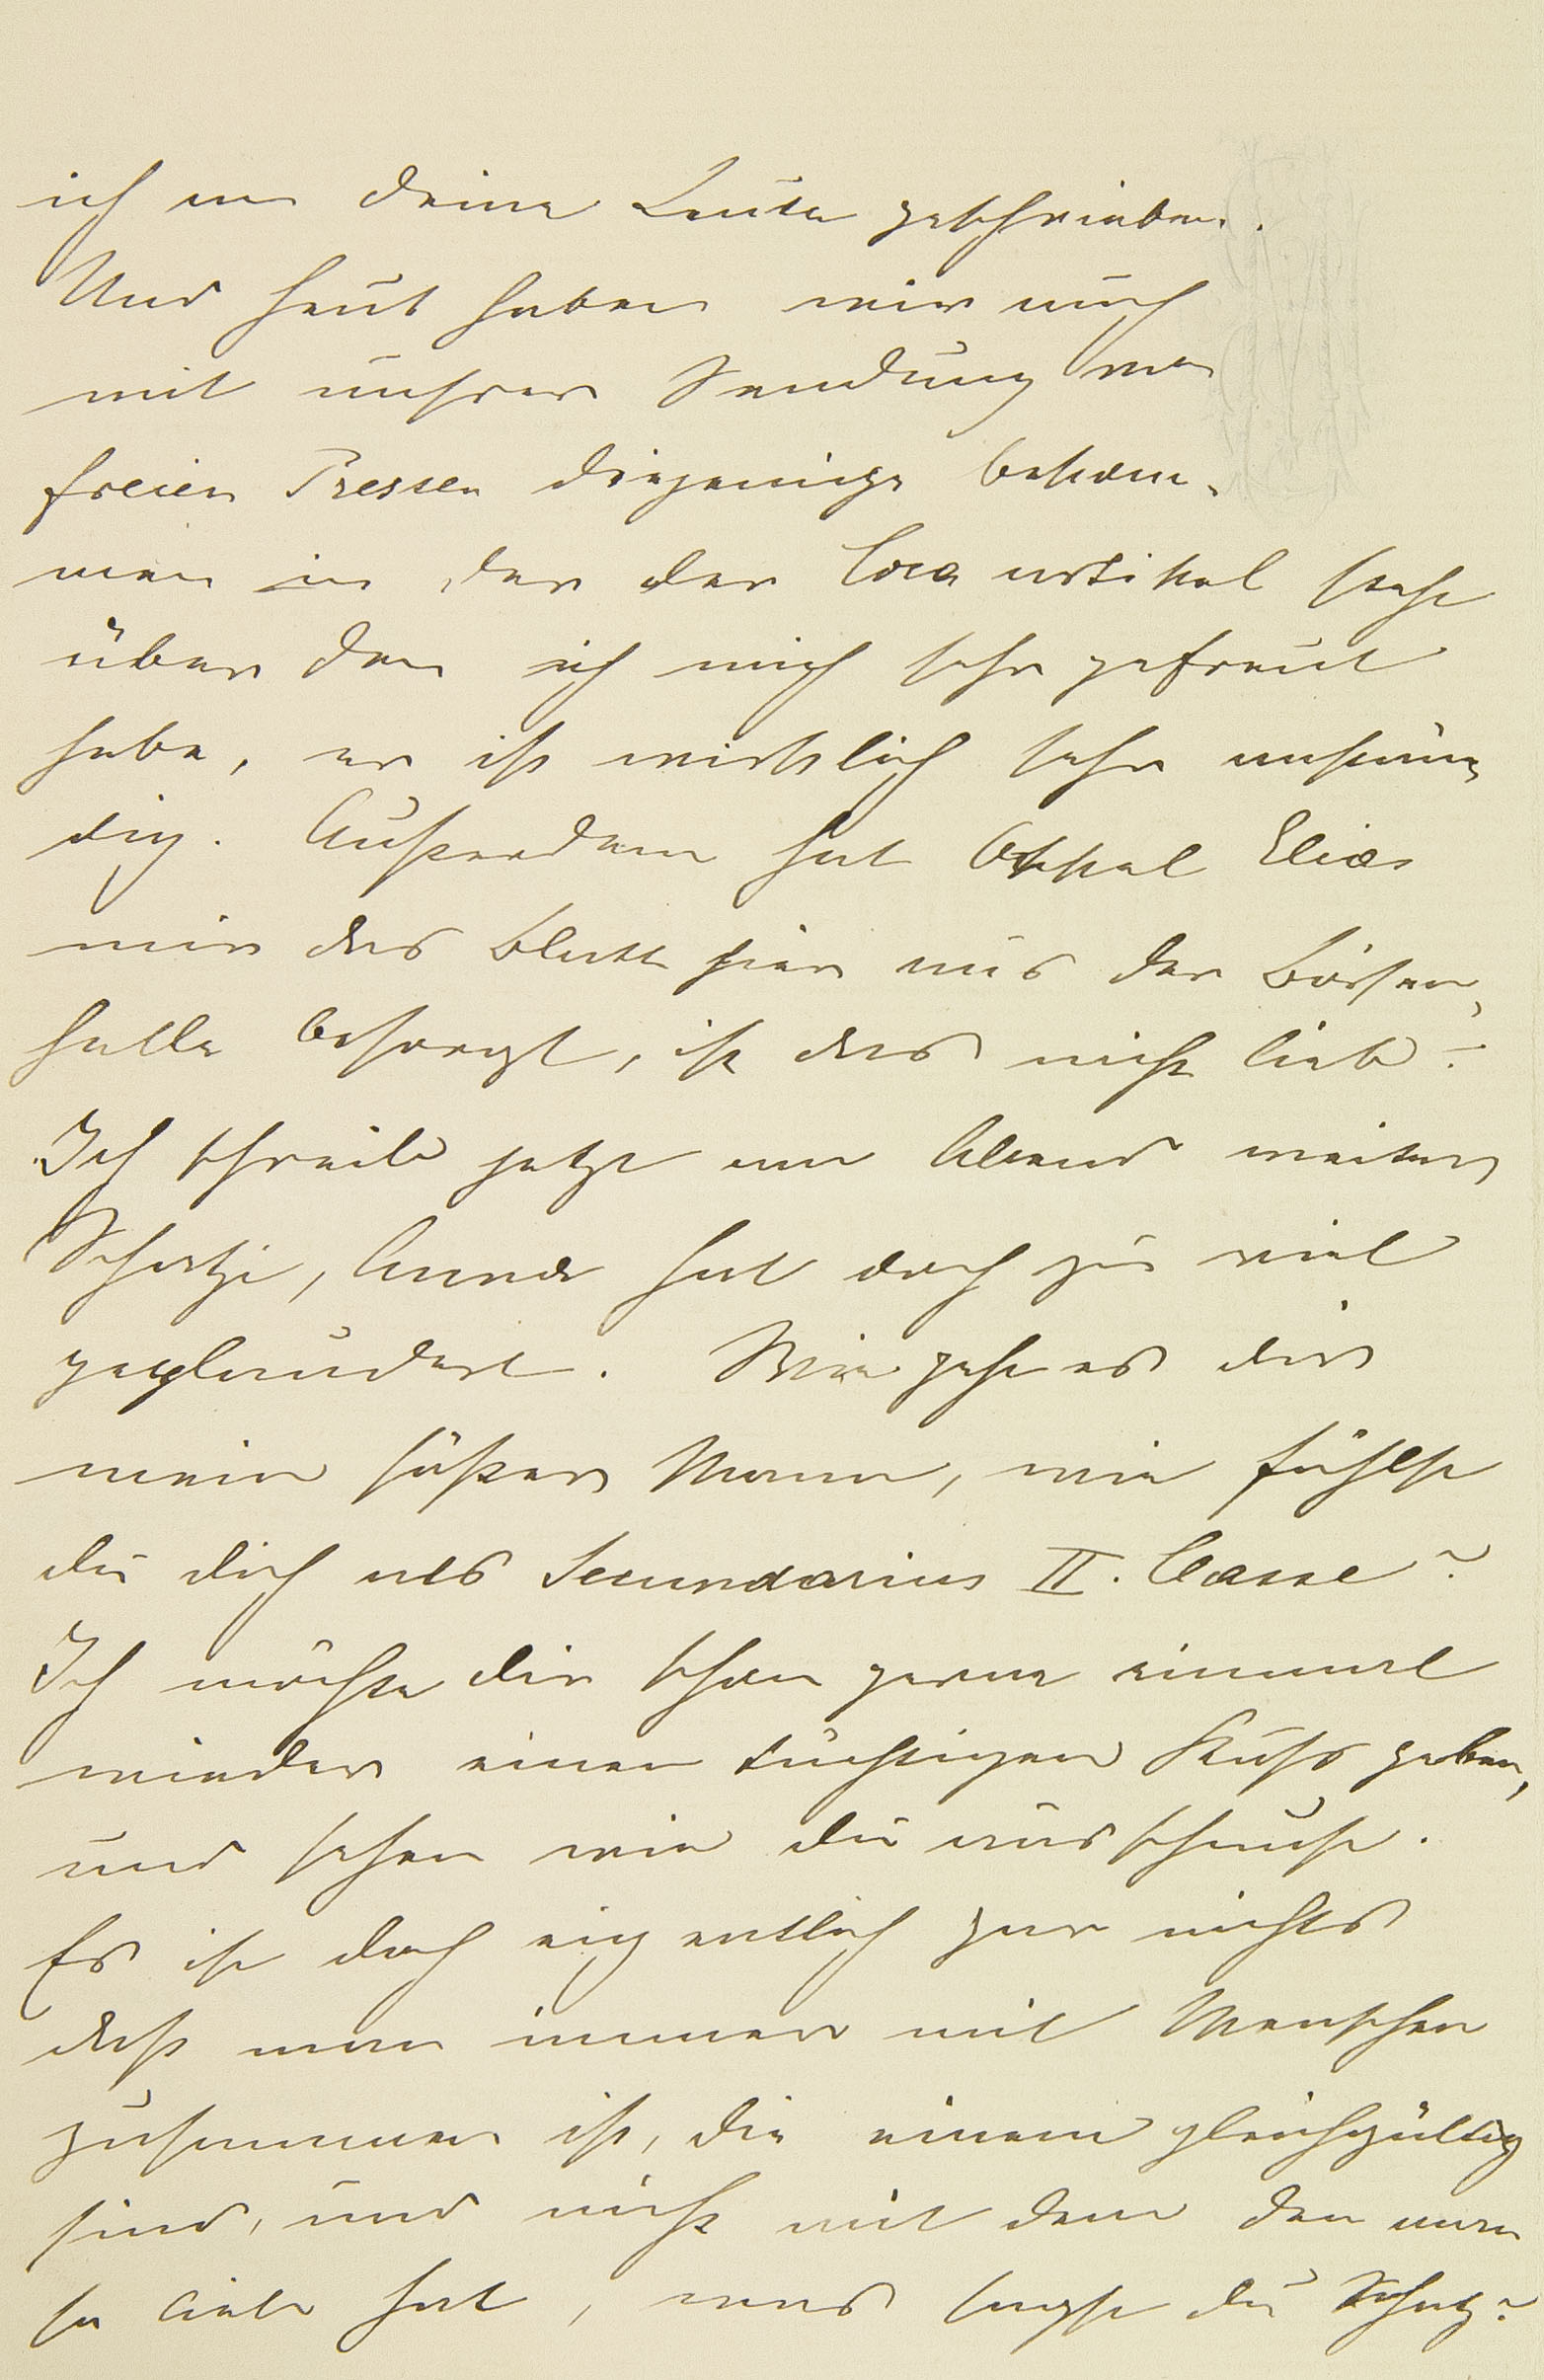 ich an deine Leute geschrieben.
Und heut haben wir auch
mit unsrer Sendung von
freien Pressen diejenige bekom-
men in der der Coca artikel steht
über den ich mich sehr gefreut
habe, er ist wirklich sehr anstän-
dig. Außerdem hat Onkel Elias
mir das Blatt hier aus der Börsen-
halle besorgt, ist das nicht lieb?
Ich schreibe jetzt am Abend weiter
Schatzi, Anna hat doch zu viel
geplaudert. Wie geht es dir
mein süßer Mann, wie fühlst
du dich als Secundarius II. Classe?
Ich möchte dir schon gerne einmal
wieder einen tüchtigen Kuss geben,
und sehen wie du ausschaust.
Es ist doch eigentlich gar nichts
daß man immer mit Menschen
zusammen ist, die einem gleichgültig
sind, und nicht mit dem den man
so lieb hat, was sagst du Schatz?